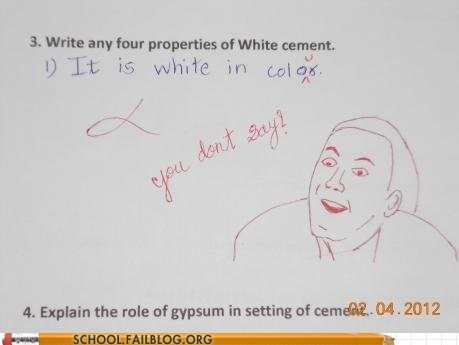 3. Write any four properties of White cement.
1) It is white in color.
u
you don't say?
4. Explain the role of gypsum in setting of cement.
02.04.2012
SCHOOL.FAILBLOG.ORG